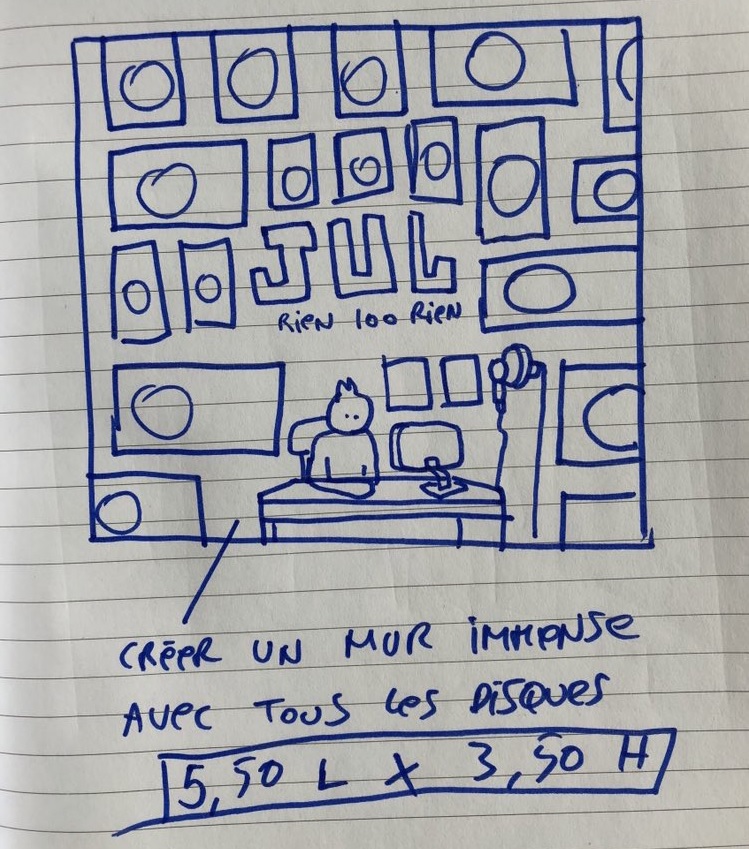 JUL
RiEN 100 RiEN
CRÉER UN MUR iMMENSE
AVEC TOUS LES DiSQUES
5,50 L X 3,50 H